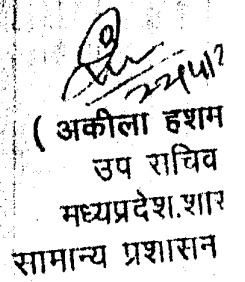 ( अकीला हशम
उप राचिव
मध्यप्रदेश.शार
सामान्य प्रशासन